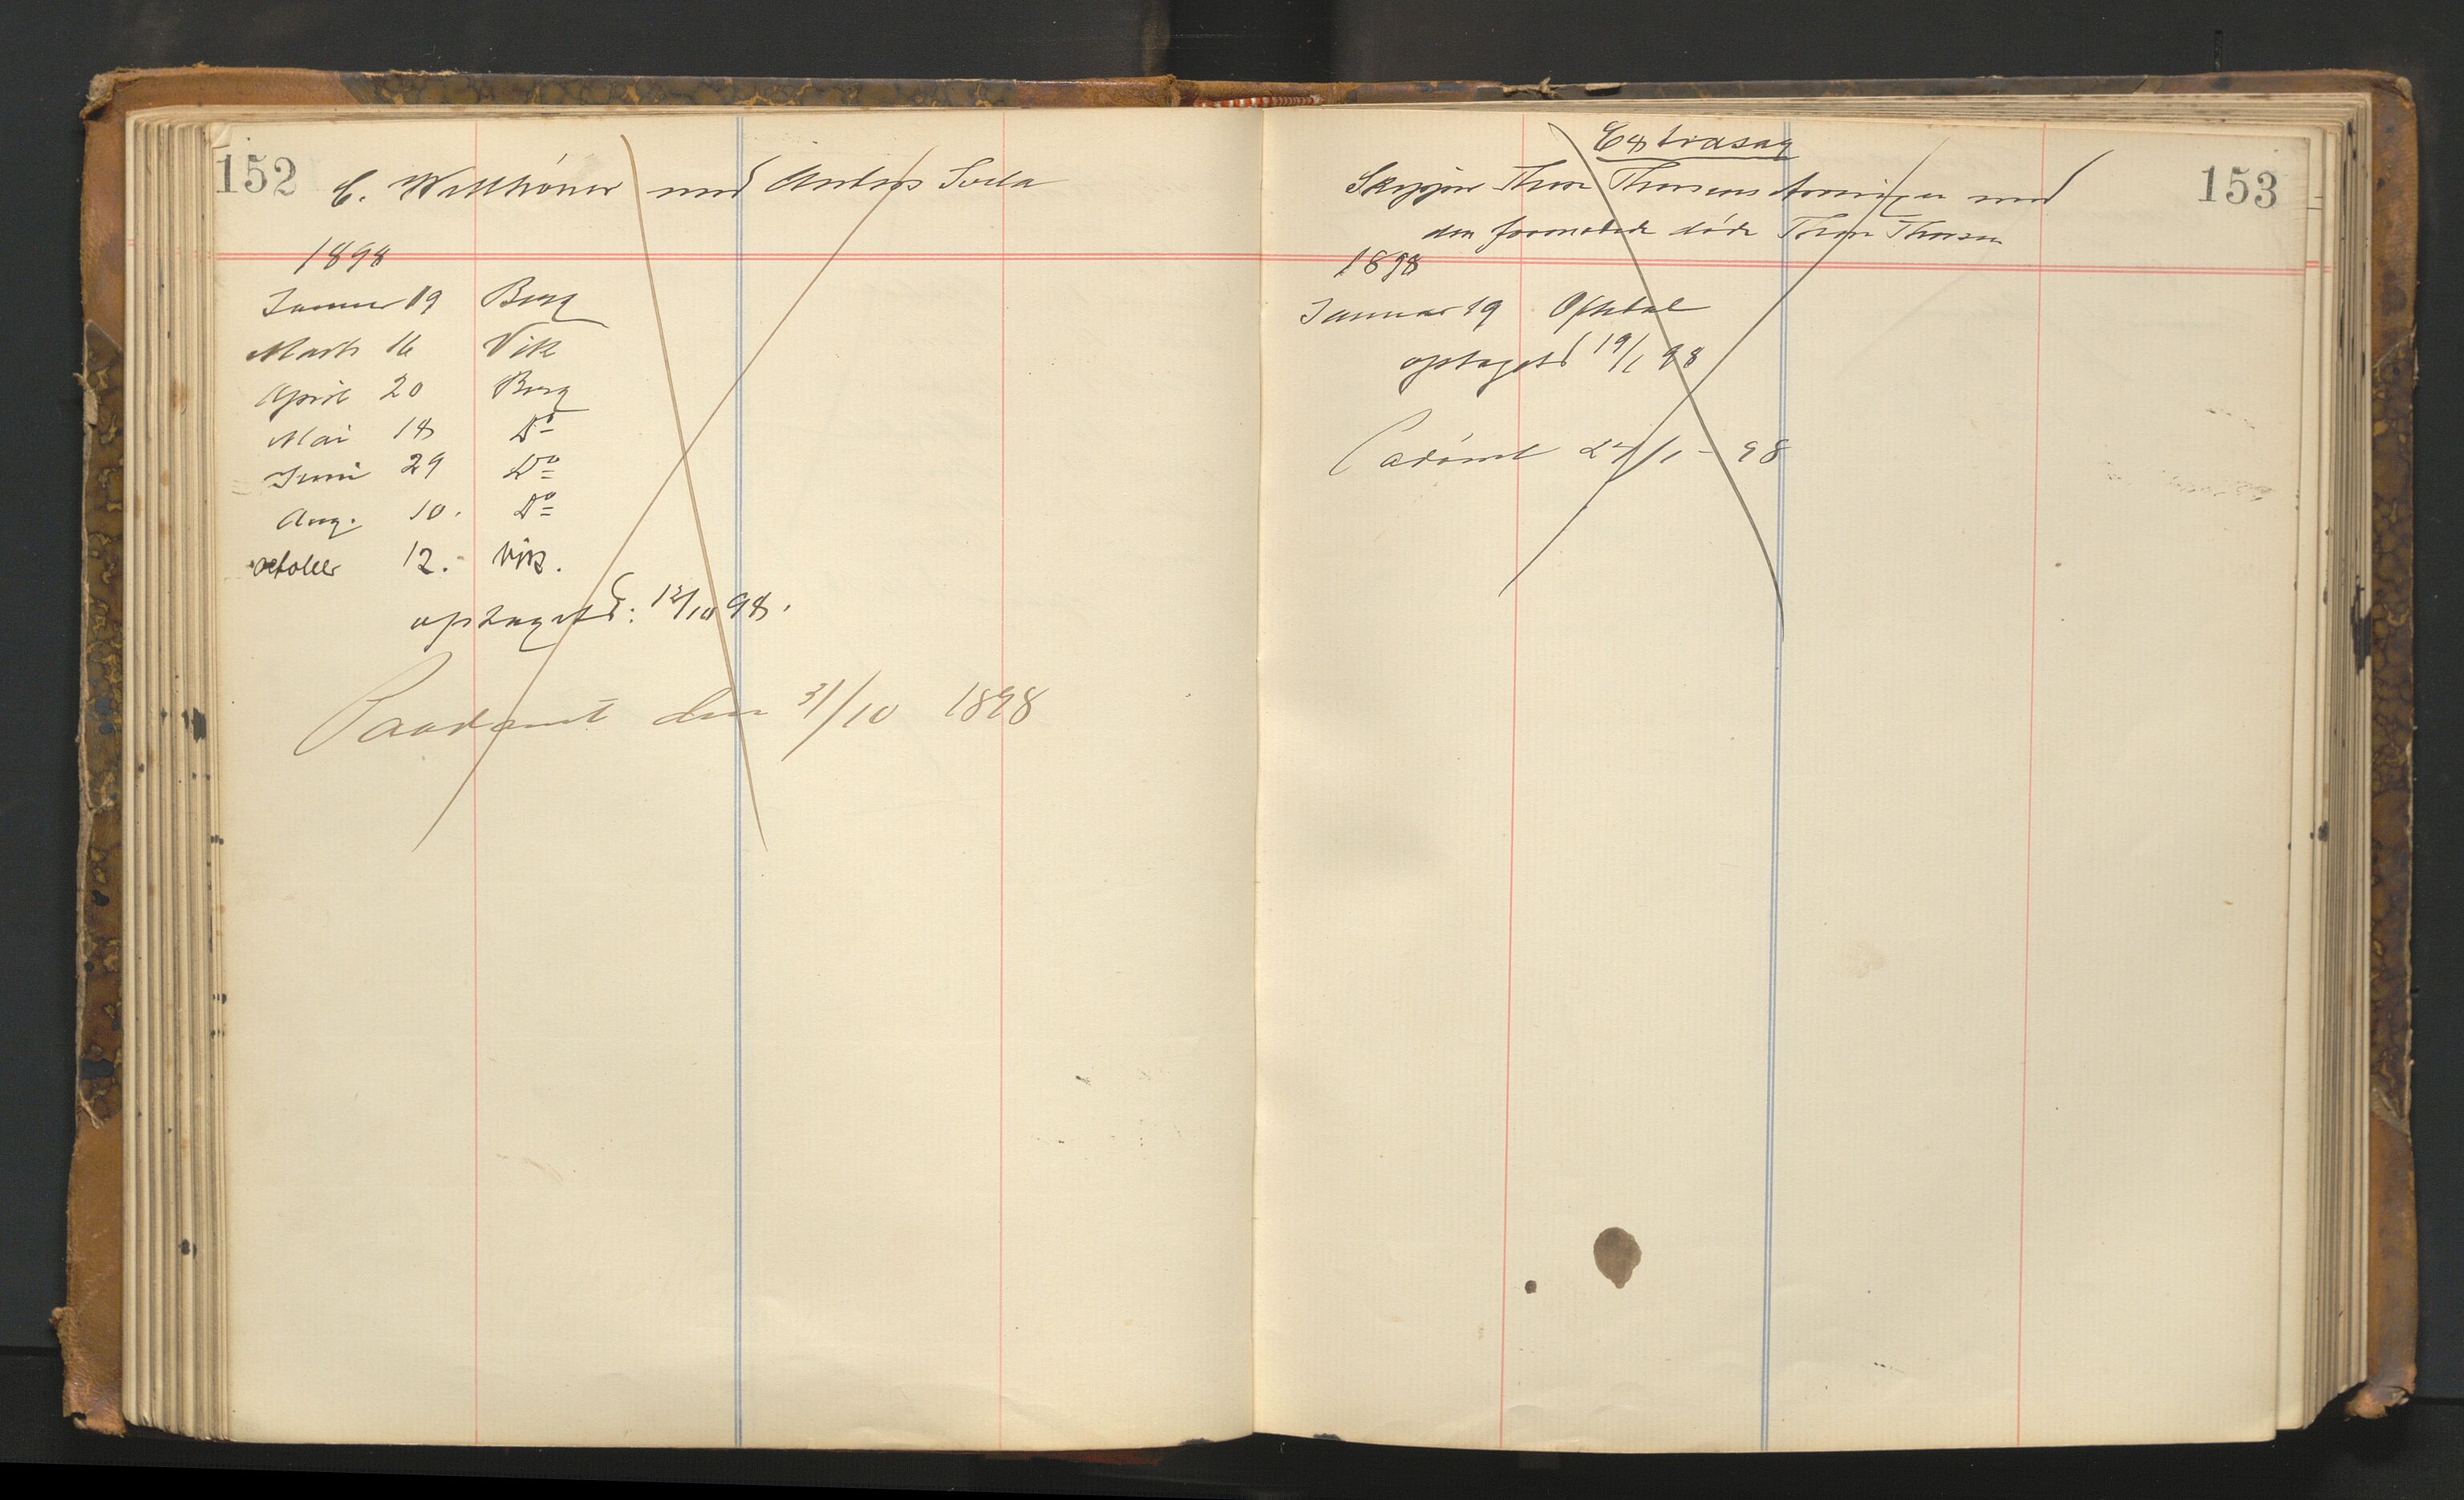 152
C. mod Anders
1898
Januar 19 Berg
Marts 16 Vik
April 20 Berg
Mai 18 Do
Juni 29 Do
Aug. 10. Do
october 12.-
optaget: 12/10 98.
Paadømt den 31/10 1898
Extrasag
153
Skipper Thore Thorsens Arvinger mod
den formodede døde Thore Thorsen
1898
Januar 19 Oftedal
optaget 19/1 98
Padømt /1 - 98